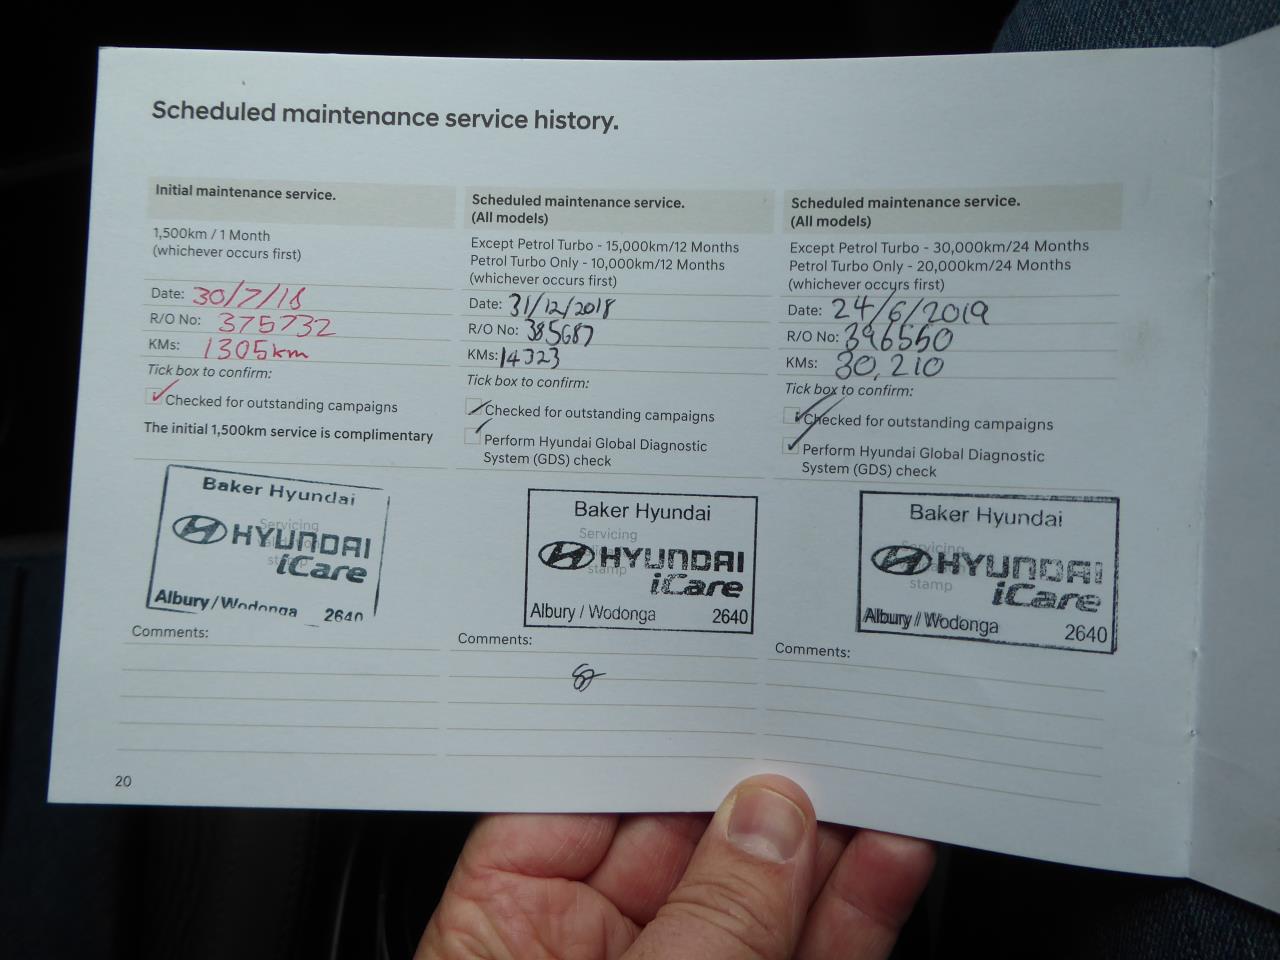 Scheduled maintenance service history.
Initial maintenance service.
1,500km / 1 Month
(whichever occurs first)
Date: 30/7/18
R/O No: 375732
KMs: 1305km
Tick box to confirm:
Checked for outstanding campaigns
The initial 1,500km service is complimentary
Baker Hyundai
Servicing
HYUNDAI
iCare
Albury / Wodonga 2640
Comments:
Scheduled maintenance service.
(All models)
Except Petrol Turbo - 15,000km/12 Months
Petrol Turbo Only - 10,000km/12 Months
(whichever occurs first)
Date: 31/12/2018
R/O No: 385687
KMs: 14323
Tick box to confirm:
Checked for outstanding campaigns
Perform Hyundai Global Diagnostic
System (GDS) check
Baker Hyundai
Servicing
HYUNDAI
stamp
iCare
Albury / Wodonga 2640
Comments:
Scheduled maintenance service.
(All models)
Except Petrol Turbo - 30,000km/24 Months
Petrol Turbo Only - 20,000km/24 Months
(whichever occurs first)
Date: 24/6/2019
R/O No: 396550
KMs: 30,210
Tick box to confirm:
Checked for outstanding campaigns
Perform Hyundai Global Diagnostic
System (GDS) check
Baker Hyundai
Servicing
HYUNDAI
stamp
iCare
Albury / Wodonga 2640
Comments:
20